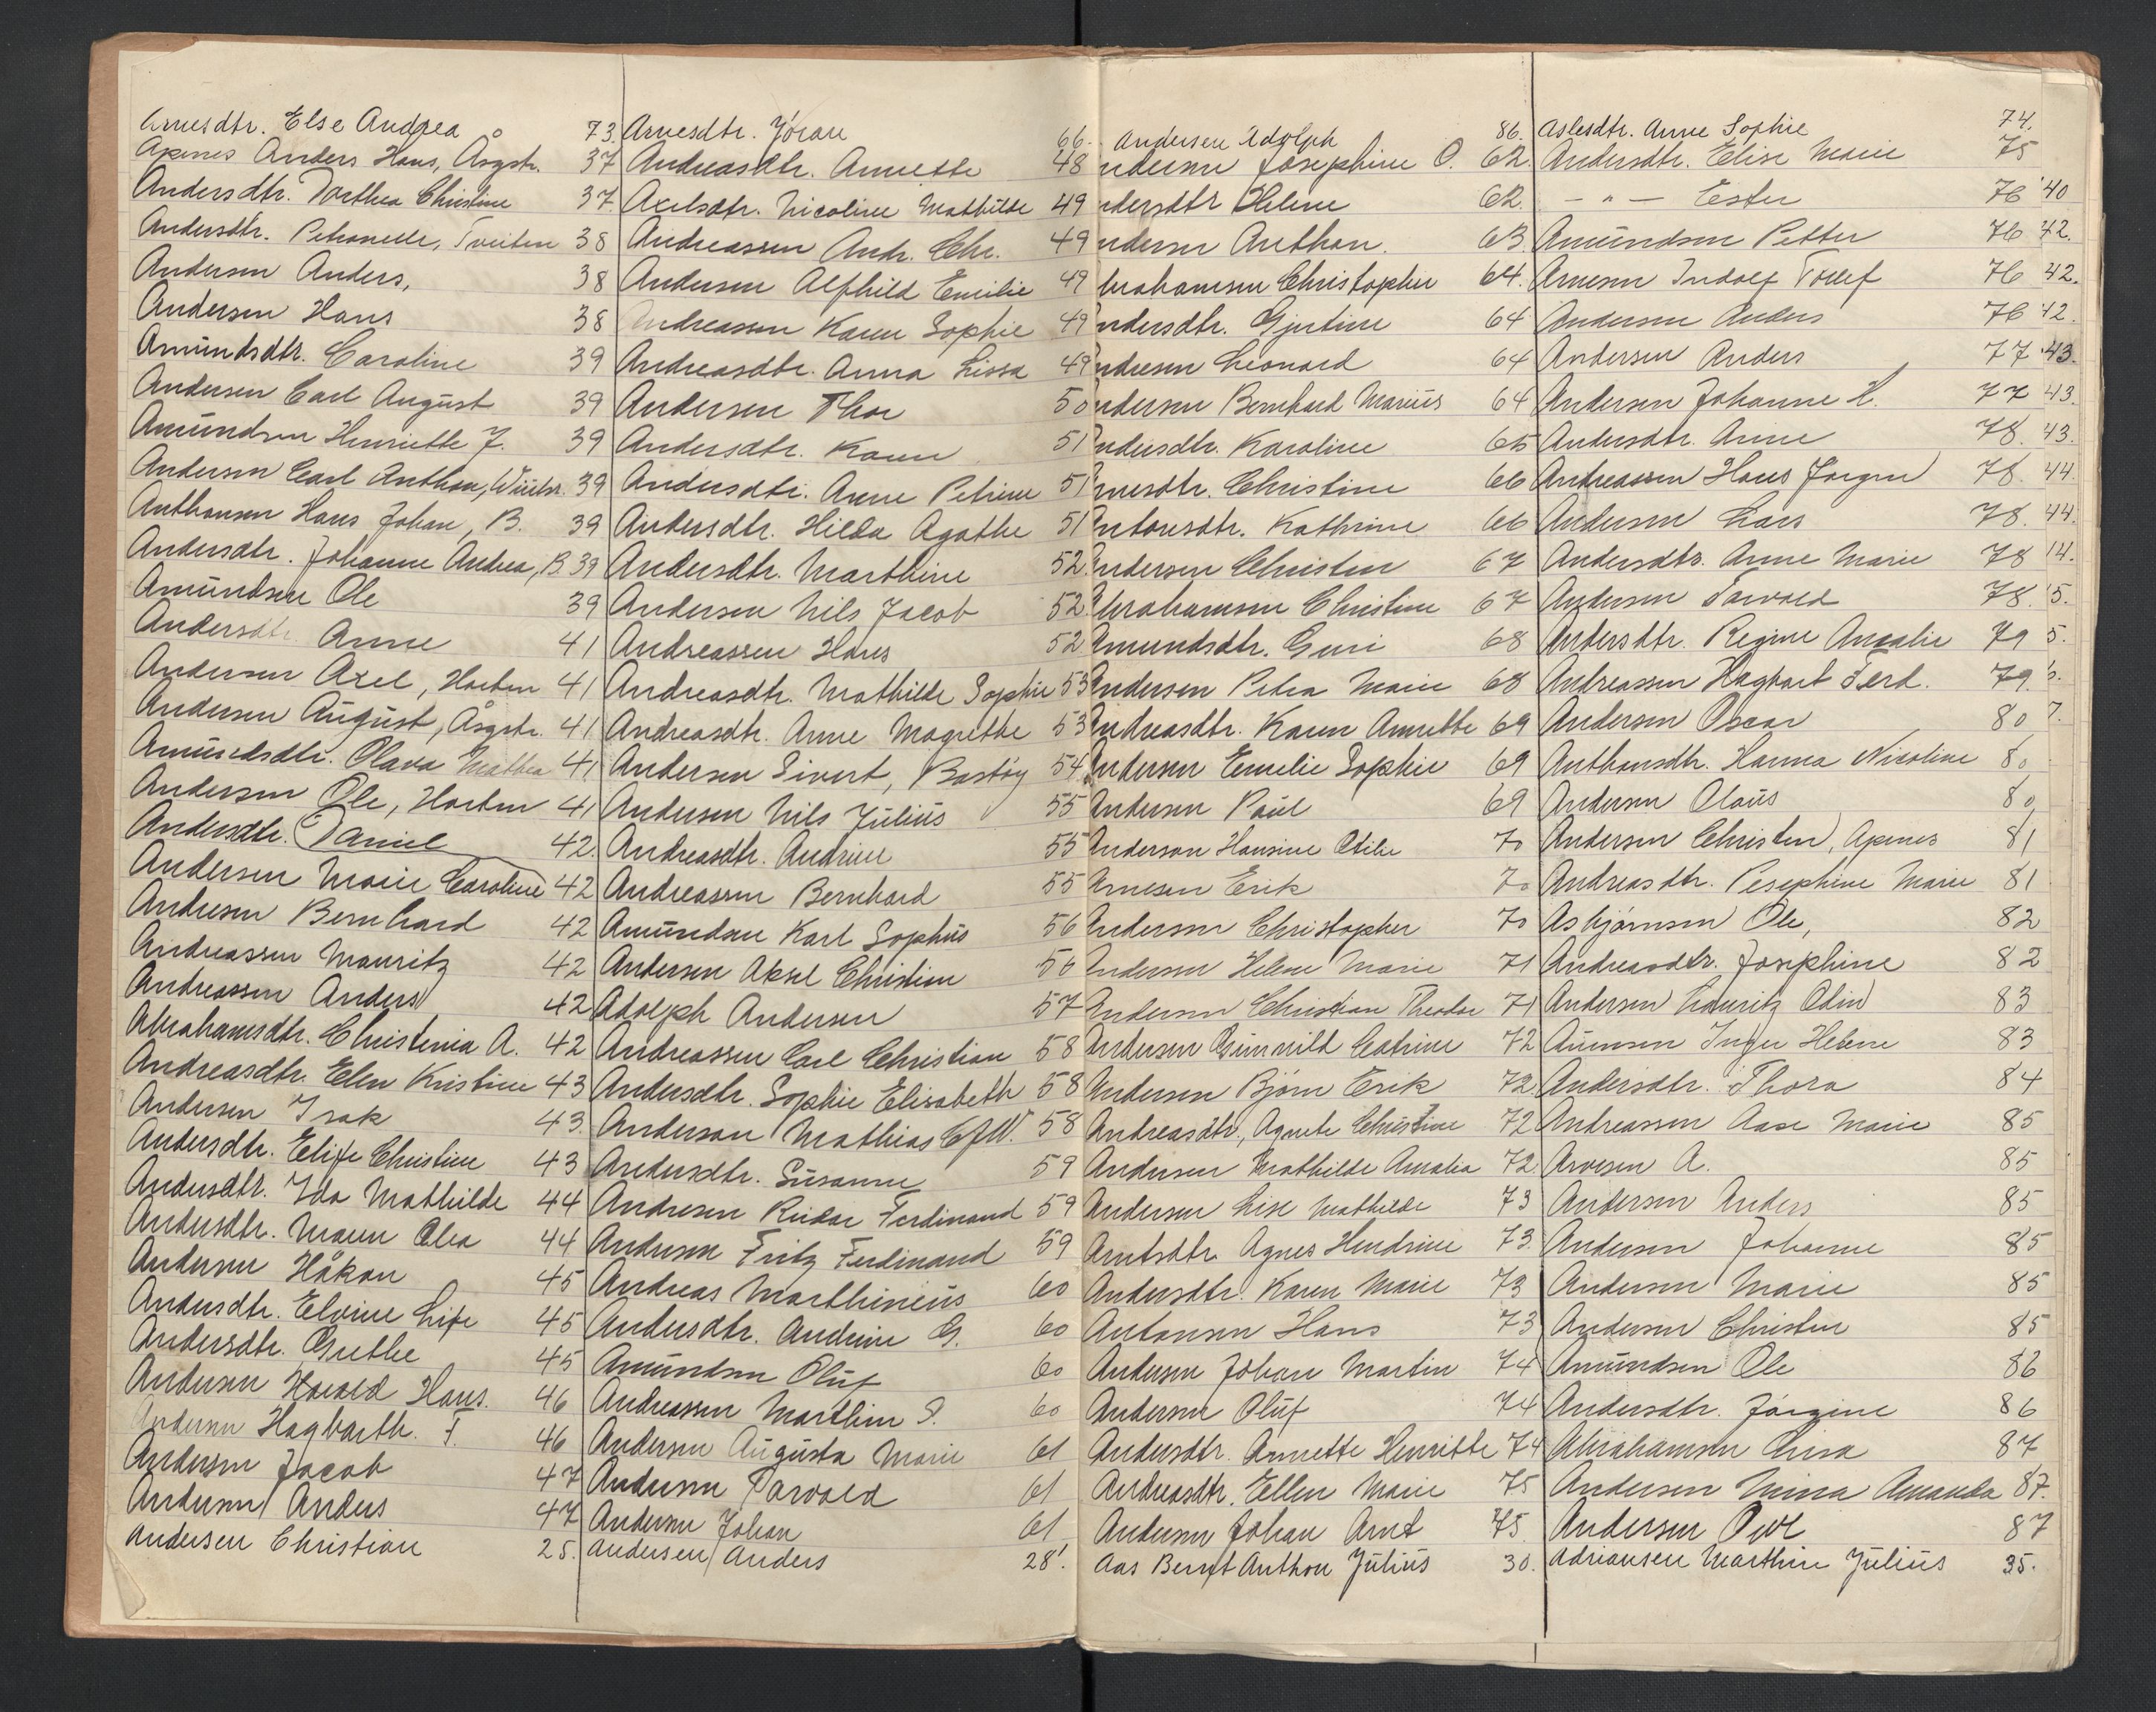 Arnesdtr. Else Andrea 73.
Apenes Anders Hans, Åsgstr. 37
Andersdtr. Dorthea Christine 37.
Andersdtr. Petronelle, Tveiten 38
Andersen Anders, 38
Andersen Hans 38
Amundsdtr. Caroline 39
Andersen Carl August 39
Amundsen Henriette J. 39
Andersen Carl Anthon, 39
Anthonsen Hans Johan, B. 39
Andersdtr. Johanne Andrea, B. 39
Amundsen Ole 39
Andersdtr. Anne 41
Andersen Axel, Horten 41
Andersen August, Åsgstr. 41
Amundsdtr. Olava Mathea 41
Andersen Ole, Horten 41
Andersdtr. Daniel 42.
Andersen Marie Caroline 42
Andresen Bernhard 42
Andreassen Mauritz 42
Andreassen Anders 42
Abrahamsdtr. Christenia A. 42
Andreasdtr. Elen Kristine 43
Andersen Isak 43.
Andersdtr. Elise Christine 43
Andersdtr. Ida Mathilde 44
Andersdtr. Maren Olea 44
Andersen Håkon 45
Andersdtr. Elvine Lise 45
Andersdtr. Grethe 45
Andersen Harald Hans. 46
Andersen Hagbarth. F. 46
Andersen Jacob 47
Andersen Anders 47
Andersen Christian 25.
Arnesdtr. Jöran 66.
Andreasdtr. Annette 48
Axelsdtr. Nicoline Mathilde 49
Andreassen Andr. Chr. 49
Andersen Alfhild Emilie 49
Andreassen Karen Sophie 49
Andreasdtr. Anna Lissa 49
Andersen Thor 50
Andersdtr. Karen 51
Andersdtr. Anne Petrine 51
Andersdtr. Hilda Agathe 51
Andersdtr. Marthine 52.
Andersen Nils Jacob 52
Andreassen Hans 52
Andreasdtr. Mathilde Sophie 53
Andreasdtr. Anne Magrethe 53
Andersen Sivert, Bastöy 54
Andersen Nils Julius 55
Andreasdtr. Andrine 55
Andreassen Bernhard 55
Amundsen Karl Sophus 56
Andersen Aksel Christian 56
Adolph Andersen 57
Andreassen Carl Christian 58
Andersdtr. Sophie Elisabeth 58
Anderson Mathias C.J.W. 58
Andersdtr. Susanne 59
Andresen Reidar Ferdinand 59
Andersen Fritz Ferdinand 59
Andreas Marthineus 60
Andersdtr. Andrine G. 60
Amundsen Oluf 60
Andreassen Marthin S. 60
Andersen Augusta Marie 61
Andersen Torvald 61
Andersen Johan 61
Andersen Anders 28.
Andersen Adolph 86.
ndersen Josephine O. 62.
ndersdtr Helene 62.
ndersen Anthon. 63
brahamsen Christopher 64.
ndersdtr. Gjertine 64
ndresen Leonard 64
ndersen Bernhard Marius 64
ndersdtr. Karoline 65
rnesdtr. Christine 66
Antonsdtr. Kathrine 66
Andersen Christen 67
Abrahamsen Christine 67
Amundsdtr. Guri 68
Andersen Petra Marie 68
Andreasdtr. Karen Annette 69
Andersen Emelie Sophie 69
Andersen Paul 69
Anderson Hansine Otilie 70
Arnesen Erik 70
Andersen Christopher 70
Andersen Helene Marie 71
Andersen Christian Theodor 71
Andersen Gunnvild Catrine 72
Andersen Björn Erik 72
Andreasdtr., Agnete Christine 72
Andersen Mathilde Amalia 72
Andersen Lise Mathilde 73
Arntsdtr. Agnes Hendrine 73.
Andersdtr. Karen Marie 73
Antonsen Hans 73
Andersen Johan Martin 74
Andersen Oluf 74
Andersdtr. Annette Henriette 74
Andreasdtr. Ellen Marie 75
Andersen Johan Arnt 75
Aas Bernt Anthon Julius 30.
Aslesdtr. Anne Sophie 74.
Andersdtr. Elise Marie 75
— " — Ester 76 '40
Amundsen Petter 76 42.
Arnesen Indolf Tollef 76 42.
Andersen Anders 76 42.
Andersen Anders 77 43.
Andersen Johanne H. 77 43.
Andersdtr. Anne 78. 43.
Andreassen Hans Jörgen 78. 44.
Andersen Lars 78. 44.
Andersdtr. Anne Marie 78 14.
Andersen Torvald 78. 5.
Andersdtr. Regine Amalie 79 5.
Andreassen Hagbart Ferd. 79.
Andersen Oscar 80 7.
Anthonsdtr. Hanna Nicoline 80
Andersen Olaus 80
Andersen Christen, Apenes 81
Andreasdtr. Pesephine Marie 81
Asbjörnsen Ole, 82
Andreasdtr. Josephine 82
Andersen Lauritz Odin 83
Aunnsen Inger Helene 83
Andersdtr. Thora 84
Andreassen Aase Marie 85
Arvesen A. 85
Andersen Anders 85
Andersen Johanne 85
Andersen Marie 85
Andersen Christen 85
Amundsen Ole 86
Andersdtr. Jörgine 86
Abrahamsen Lina 87
Andersen Minna Amanda 87.
Andersen 87
Adriansen Marthin Julius 35.